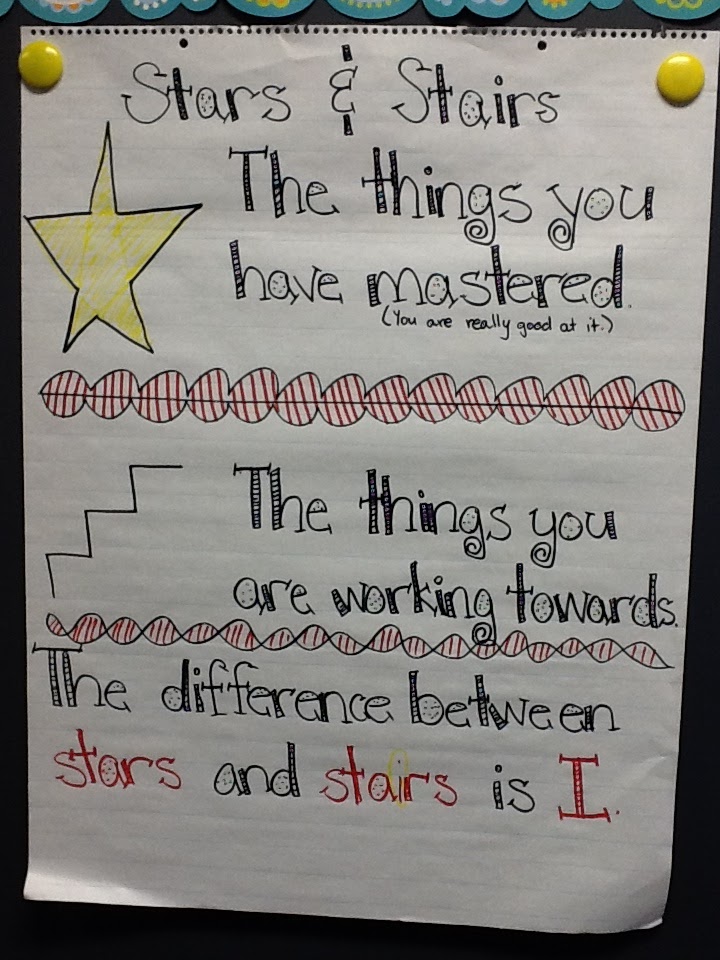 Stars & Stairs
The things you
have mastered.
(You are really good at it.)
The things you
are working towards.
The difference between
stars and stairs is I.